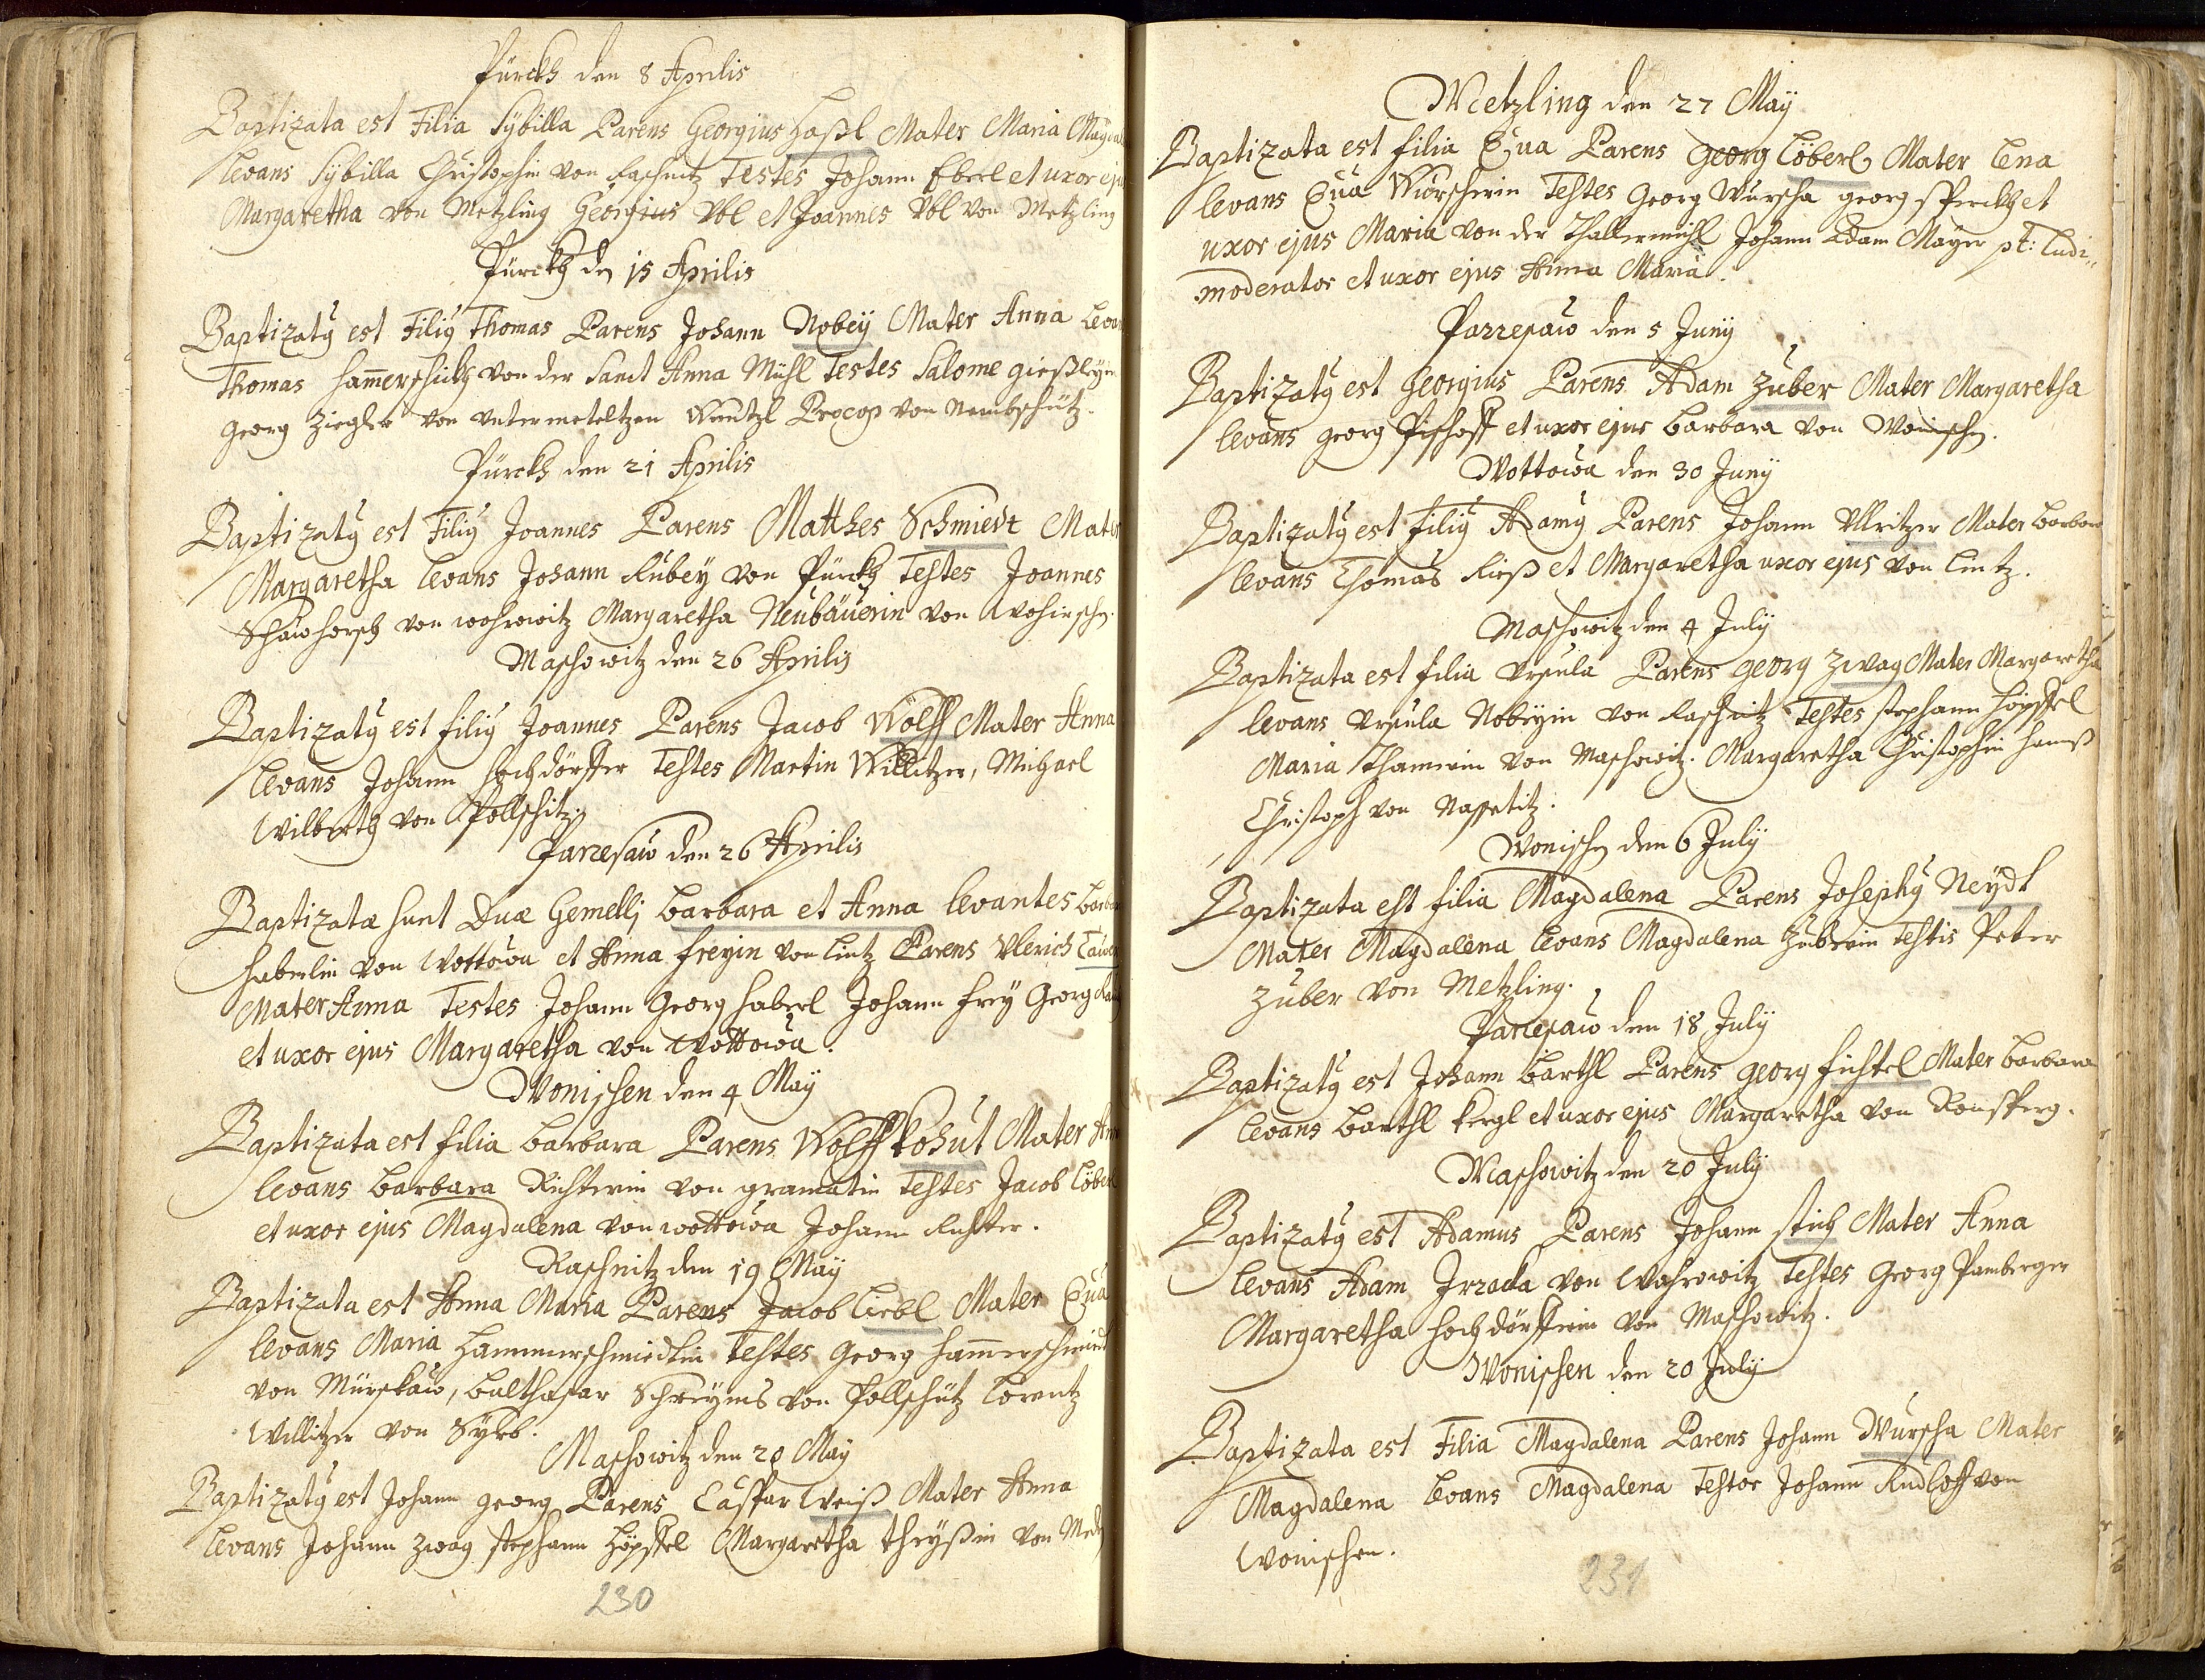 Pürckh den 8 Aprilis
Baptizata est Filia Sÿbilla Parens Georgius Haßl Mater Maria
levans Sÿbilla Christophin von Raschnitz Testes Johann Eberl et uxor
Margaretha von Metzling Georgius Vbl et Joannes Vbl von Metzling
Pürckh den 15 Aprilis
Baptizatꝰ est Filiꝰ Thomas Parens Johann Nobeÿ Mater Anna
Thomas von der Sanct Anna Mühl Testes Salome
Georg Ziegler von Wentzl Procop von
Pürckh den 21 Aprilis
Baptizatꝰ est Filiꝰ Joannes Parens Matthes Schmiedt
Margaretha levans Johann Rubeÿ von Pürckh Testes Joannes
von wohrowitz Margaretha Neubäuerin von
Maschowitz den 26 Aprilis
Baptizatꝰ est filiꝰ Joannes Parens Jacob Wolff Mater Anna
levans Johann Hochdörffer Testes Martin Willitzer, Michael
von Pollschitz
Parresau den 26 Aprilis
Baptizatæ sunt Duæ Gemellj Barbara et Anna levantes
Haberlin von Wottowa et Anna Freyin von Lintz Parens Vlerich
Mater Anna Testes Johann Georg Haberl Johann Freÿ Georg
et uxor ejus Margaretha von Wottowa.
Wonischen den 4 Maÿ
Baptizata est filia Barbara Parens Wolff Kohut Mater
levans Barbara Richterin von gramatin Testes Jacob
et uxor ejus Magdalena von wottowa Johann Richter.
Raschnitz den 19 Maÿ
Baptizata est Anna Maria Parens Jacob Liebl Mater Eua
levans Maria Hammerschmiedtin Testes Georg
von Mürskau, Balthasar von Pollschütz Lorentz
Willitzer von
Maschowitz den 20 Maÿ
Baptizatꝰ est Johann georg Parens Caspar Weiß Mater Anna
levans Johann Zwag Stephann Höpffel Margaretha von
230
Metzling den 27 Maÿ
Baptizata est filia Eua Parens Georg Löberl Mater Lena
levans Eua Wurschein Testes Georg Wurscha georg et
uxor ejus Maria von der Johann Adam Maÿer pt: Ludi„
moderator et uxor ejus Anna Maria.
Parresau den 5 Junÿ
Baptizatꝰ est Georgius Parens Adam Zuber Mater Margaretha
levans georg Pischoff et uxor ejus Barbara von Wonischen.
Wottowa den 30 Junÿ
Baptizatꝰ est filiꝰ Adamꝰ Parens Johann Vllritzer Mater Barbara
levans Thomas Rieß et Margaretha uxor ejus von Lintz.
Maschowitz den 4 Julÿ
Baptizata est filia Vrsula Parens georg Zwag Mater Margaretha
levans Vrsula Nobeÿin von Raschnitz Testes Stephann Höpffel
Maria von Maschowitz. Margaretha Christophin Hanß
Christoph von Nassetitz.
Wonischen den 6 Julÿ
Baptizata est filia Magdalena Parens Josephꝰ Neÿdl
Mater Magdalena levans Magdalena Zuberin Testis Peter
Zuber von Metzling.
Parresau den 18 Julÿ
Baptizatꝰ est Johann Barthl Parens georg Fichtel Mater Barbara
levans Barthl Kergl et uxor ejus Margaretha von Ronsperg.
Maschowitz den 20 Julÿ
Baptizatꝰ est Adamus Parens Johann Stich Mater Anna
levans Adam Jrzacka von Wohrowitz Testes Georg Pamberger
Margaretha Hochdörfferin von Maschowitz.
Wonischen den 20 Julÿ
Baptizata est Filia Magdalena Parens Johann Wurscha Mater
Magdalena levans Magdalena Testor Johann Rudloff von
Wonischen.
231